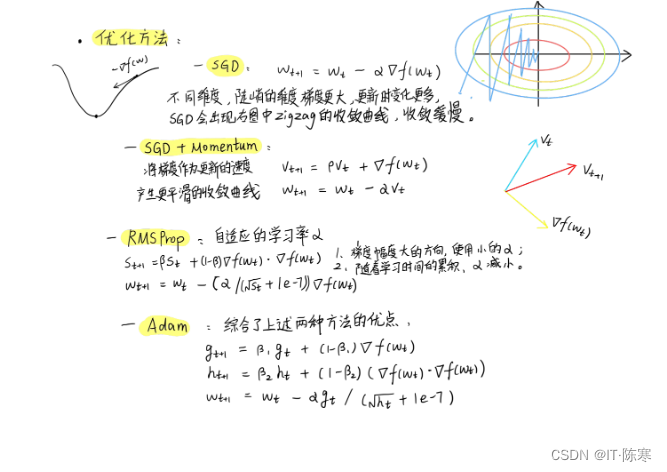 • 优化方法:
-∇f(w)
- SGD: w_{t+1} = w_t - α∇f(w_t)
不同维度,陡峭的维度梯度更大,更新时变化更多,
SGD会出现右图中zigzag的收敛曲线,收敛缓慢。
- SGD + Momentum:
将梯度作为更新的速度 v_{t+1} = ρv_t + ∇f(w_t)
产生更平滑的收敛曲线 w_{t+1} = w_t - αv_t
v_t
v_{t+1}
∇f(w_t)
- RMSProp: 自适应的学习率α
1、梯度幅度大的方向,使用小的α;
2、随着学习时间的累积,α减小。
s_{t+1} = βs_t + (1-β)∇f(w_t)·∇f(w_t)
w_{t+1} = w_t - (α/(√s_t + 1e-7))∇f(w_t)
- Adam : 综合了上述两种方法的优点.
g_{t+1} = β₁g_t + (1-β₁)∇f(w_t)
h_{t+1} = β₂h_t + (1-β₂)(∇f(w_t)·∇f(w_t))
w_{t+1} = w_t - αg_t / (√h_t + 1e-7)
CSDN @IT·陈寒